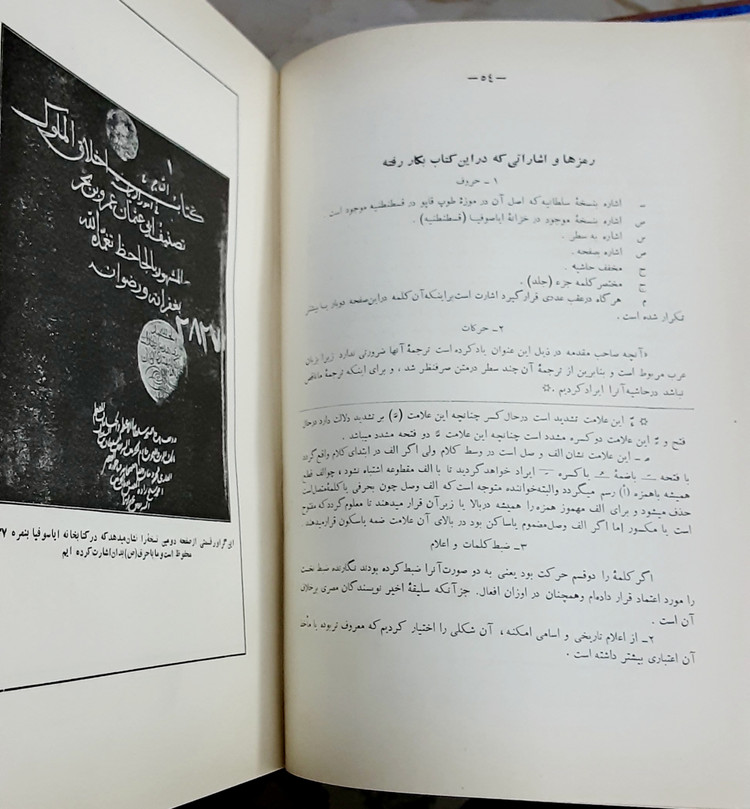 — ٥٤ —
رمزها و اشاراتی که در این کتاب بکار رفته
۱ ـ حروف
ـ اشاره بنسخهٔ سلطانیه که اصل آن در موزهٔ طوپ قاپو در قسطنطنیه موجود است
ص اشاره بنسخهٔ موجود در خزانهٔ ایاصوفیا (قسطنطنیه) .
س اشاره به سطر .
ص اشاره بصفحه .
ح مخفف حاشیه .
ج مختصر کلمه جزء (جلد) .
م هرگاه در عقب عددی قرار گیرد اشارت است بر اینکه آن کلمه در این صفحه دوبار یا بیشتر
تکرار شده است .
۲ـ حرکات
«آنچه صاحب مقدمه در ذیل این عنوان یاد کرده است ترجمهٔ آنها ضرورتی ندارد زیرا بزبان
عرب مربوط است و بنابرین از ترجمهٔ آن چند سطر در متن صرفنظر شد ، و برای اینکه ترجمهٔ ما ناقص
نباشد در حاشیه آنرا ایراد کردیم .☆
☆ این علامت تشدید است در حال کسر چنانچه این علامت () بر تشدید دلالت دارد در حال
فتح و این علامت دو کسره مشدد است چنانچه این علامت دو فتحه مشدد میباشد .
ـ این علامت نشان الف و صل است در وسط کلام ولی اگر الف در ابتدای کلام واقع گردد
با فتحه یا ضمهٔ یا کسره ایراد خواهد گردید تا با الف مقطوعه اشتباه نشود ، چو الف قطع
همیشه با همزه (أ) رسم میگردد و البته خواننده متوجه است که الف وصل چون بحرفی یا کلمهٔ متصل است
حذف میشود و برای الف مهموز همزه را همیشه در بالا یا زیر آن قرار میدهند تا معلوم گردد که مفتوح
است یا مکسور اما اگر الف وصل مضموم یا ساکن بود در بالای آن علامت ضمه یا سکون قرار میدهند.
۳ـ ضبط کلمات و اعلام
اگر کلمهٔ را دو قسم حرکت بود یعنی به دو صورت آنرا ضبط کرده بودند نگارنده ضبط نخست
را مورد اعتماد قرار داده‌ام و همچنان در اوزان افعال. جز آنکه سلیقهٔ اخیر نویسندگان مصری بر خلاف
آن است .
۲ـ از اعلام تاریخی و اسامی امکنه ، آن شکلی را اختیار کردیم که معروف تر بوده یا مأخذ
آن اعتباری بیشتر داشته است .
۱
کتاب اخلاق الملوک
تصنیف ابی عثمان عمرو بن بحر
المشهور بالجاحظ تغمده الله
بغفرانه ورضوانه
۲۸۲۷
این گراور قسمتی از صفحه دومین نسخه‌را نشان میدهد که در کتابخانه ایاسوفیا بنمره
محفوظ است و ما با حرف (ص) بدان اشارت کرده ایم